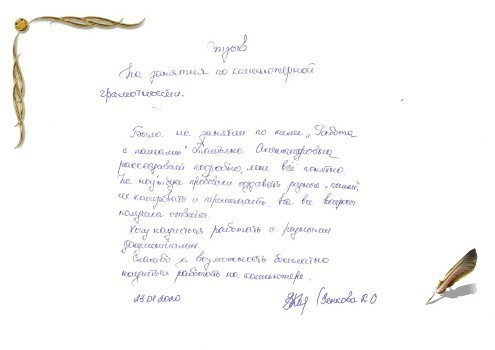 Отзыв
На занятия по компьютерной
грамотности.
Была на занятии по теме „Работа
с папками" Татьяна Александровна
рассказывает подробно, мне всё понятно.
На ноутбуке пробовали создавать разные „папки",
их копировать и перемещать. На все вопросы
получила ответы.
Хочу научиться работать с разными
документами.
Спасибо за возможность бесплатно
научиться работать на компьютере.
23.01.2020 (Зенкова К О